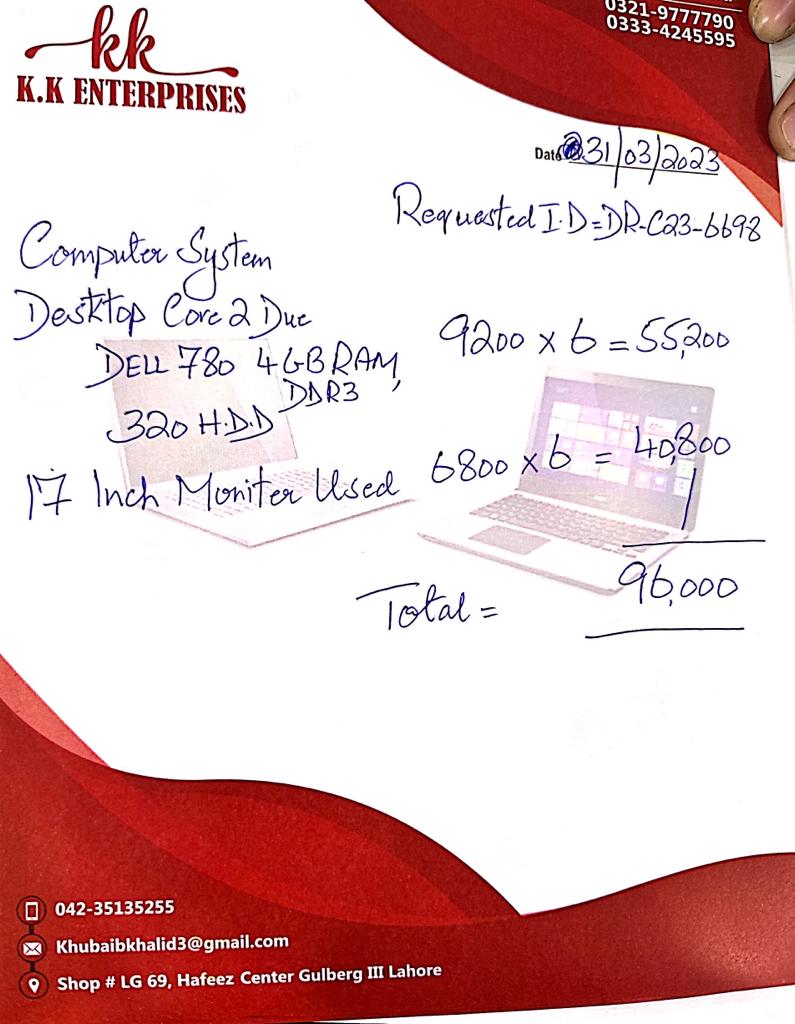 kk
K.K ENTERPRISES
0321-9777790
0333-4245595
Date 31/03/2023
Requested I.D=DR-C23-6698
Computer System
Desktop Core 2 Due
DELL 780 4GB RAM,
DDR3
320 H.D.D
9200 x 6 = 55,200
17 Inch Moniter Used 6800 x 6 = 40,800
Total = 96,000
042-35135255
Khubaibkhalid3@gmail.com
Shop # LG 69, Hafeez Center Gulberg III Lahore